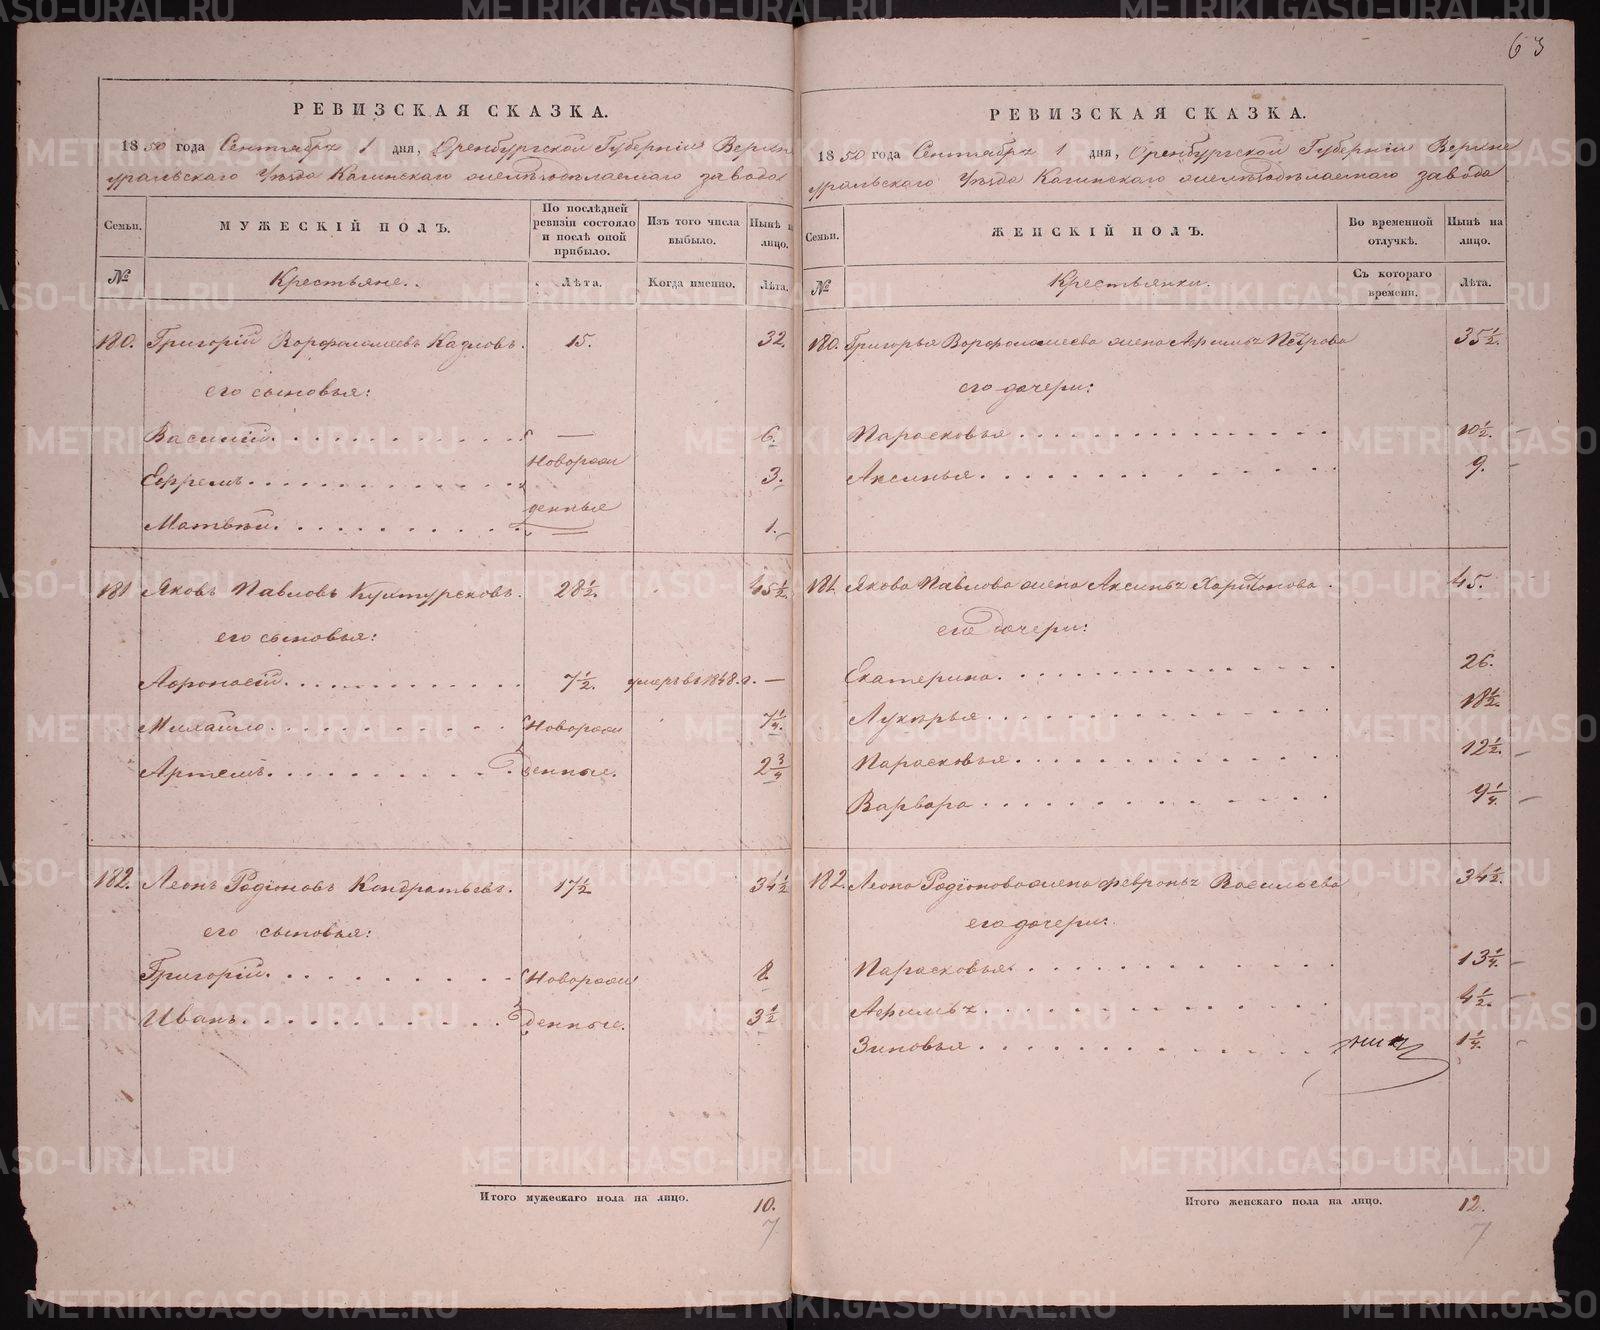 63
РЕВИЗСКАЯ СКАЗКА.
1850 года Сентября 1 дня, Оренбургской Губернiи Верхне
уральскаго Уѣзда Кагинскаго желѣзодѣлаемаго завода
Семьи.
МУЖЕСКIЙ ПОЛЪ.
По послѣдней ревизiи состояло и послѣ оной прибыло.
Изъ того числа выбыло.
Нынѣ на лицо.
№
Крестьяне.
Лѣта.
Когда именно.
Лѣта.
180. Григорiй Ворфоломеевъ Казловъ. 15. 32.
его сыновья:
Василiй 6.
Новорож
Ефремъ 3.
денные
Матвѣй 1.
181 Яковъ Павловъ 28½. 45½.
его сыновья:
Афонасiй 7½. умеръ въ 1848. г. —
Михайло Новорож 7¼.
Артемъ денные. 2¾
182. Леонъ Родiоновъ Кондратьевъ. 17½ 34½
его сыновья:
Григорiй Новорож 8.
Иванъ денные. 3½
Итого мужескаго пола на лицо. 10.
7
РЕВИЗСКАЯ СКАЗКА.
1850 года Сентября 1 дня, Оренбургской Губернiи Верхне
уральскаго Уѣзда Кагинскаго желѣзодѣлаемаго завода
Семьи.
ЖЕНСКIЙ ПОЛЪ.
Во временной отлучкѣ.
Нынѣ на лицо.
№
Крестьянки.
Съ котораго времени.
Лѣта.
180. Григорья Ворфоломеева жена Афимья Петрова 35½.
его дочери:
Парасковья 10½.
Аксинья 9.
181. Якова Павлова жена Аксинья Харитонова. 45.
его дочери:
Екатерина 26.
Лукерья 18½.
Парасковья 12½.
Варвара 9¼.
182. Леона Родiонова жена Февронья Васильева 34½.
его дочери:
Парасковья 13¼.
Афимья 4½.
Зиновья 1¼.
Итого женскаго пола на лицо. 12.
7
METRIKI.GASO-URAL.RU